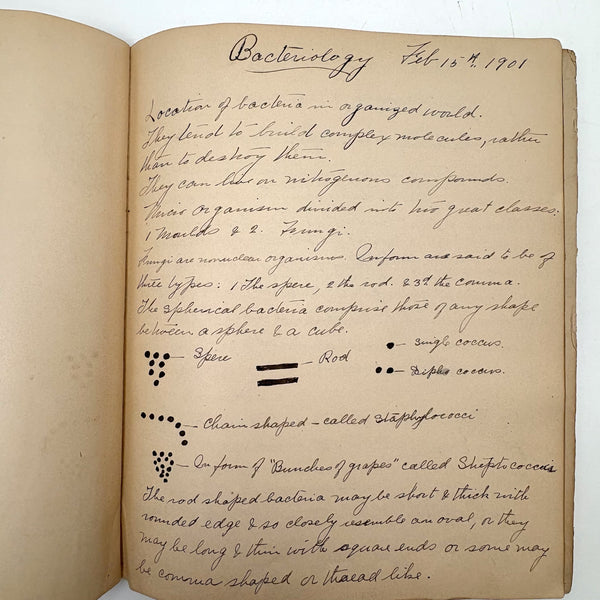 Bacteriology Feb 15th. 1901
Location of bacteria in organized world.
They tend to build complex molecules, rather
than to destroy them.
They can live on nitrogenous compounds.
Micro organism divided into two great classes:
1 Moulds & 2. Fungi.
Fungi are nonuclear organisms. In form are said to be of
three types: 1 The spere, 2 the rod. & 3d the comma.
The spherical bacteria comprise those of any shape
between a sphere & a cube.
Spere
Rod
Single coccus.
Diplo coccus.
Chain shaped - called Staphylococci
In form of "Bunches of grapes" called Streptococcus
The rod shaped bacteria may be short & thick with
rounded edge & so closely resemble an oval, or they
may be long & thin with square ends or some may
be comma shaped or thread like.